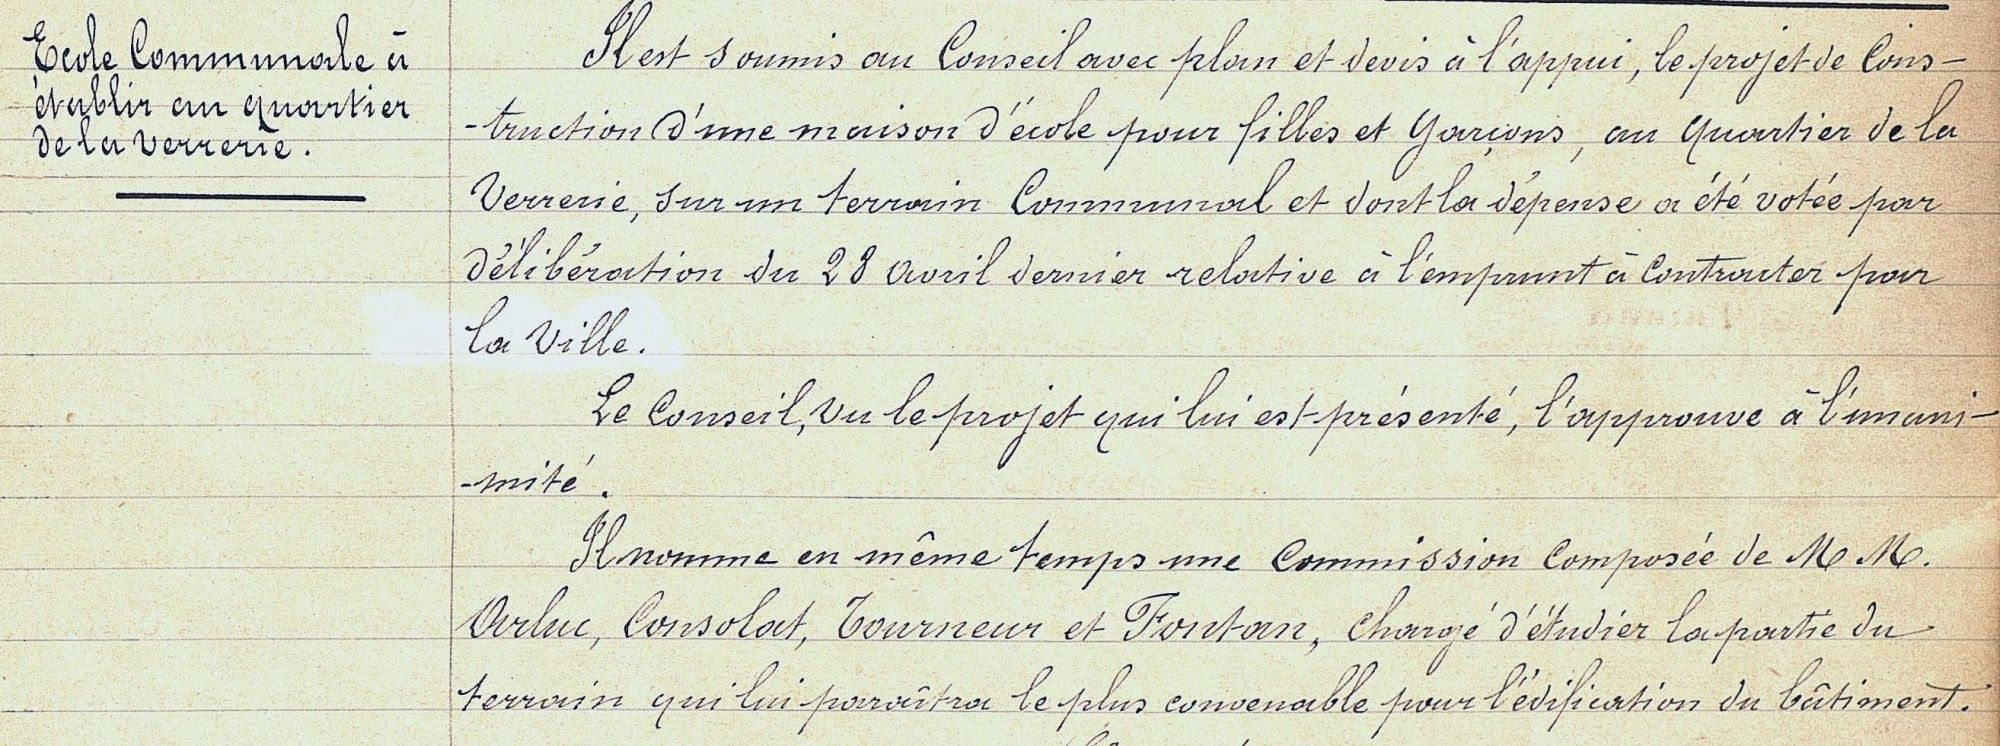 École Communale à
établir au quartier
de la verrerie.
Il est soumis au Conseil avec plan et devis à l'appui, le projet de Cons-
-truction d'une maison d'école pour filles et Garçons, au Quartier de la
Verrerie, sur un terrain Communal et dont la dépense a été votée par
délibération du 28 Avril dernier relative à l'emprunt à Contracter par
la Ville.
Le Conseil, vu le projet qui lui est présenté, l'approuve à l'unani-
-mité.
Il nomme en même temps une Commission Composée de M M.
Arluc, Consolat, Tourneur et Fontan, chargé d'étudier la partie du
terrain qui lui paraîtra le plus convenable pour l'édification du bâtiment.